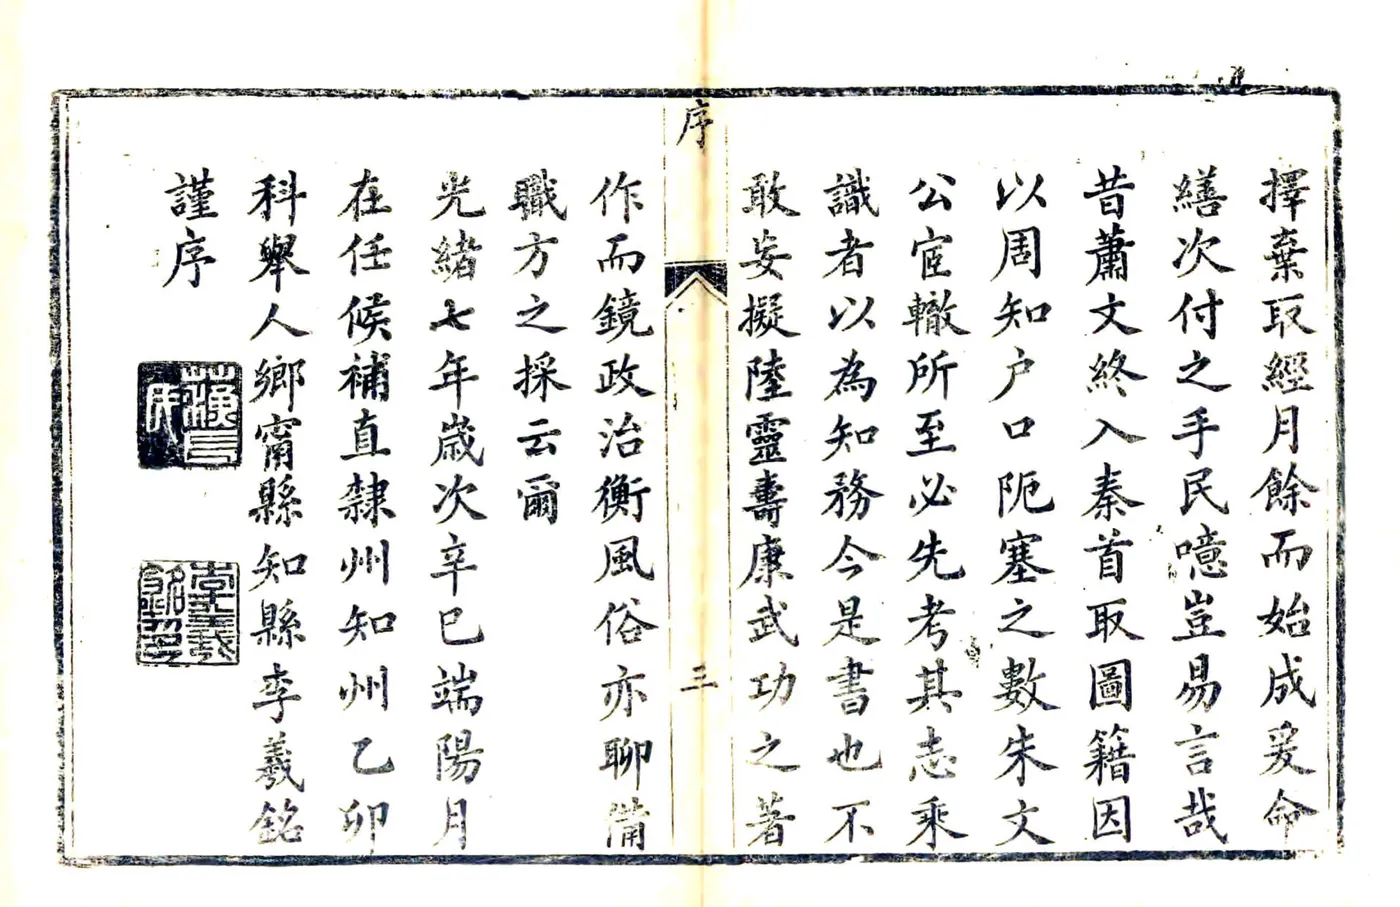 擇棄取經月餘而始成爰命
繕次付之手民噫豈易言哉
昔蕭文終入秦首取圖籍因
以周知户口阨塞之數朱文
公宦轍所至必先考其志乘
識者以為知務今是書也不
敢妄擬陸靈壽康武功之著
序
三
作而鏡政治衡風俗亦聊備
職方之採云爾
光緒七年歲次辛巳端陽月
在任候補直隸州知州乙卯
科舉人鄉甯縣知縣李羲銘
謹序